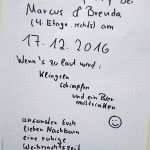 bei
Marcus & Brenda
(4. Etage rechts) am
17.12.2016
Wenn's zu laut wird:
klingeln
schimpfen
und ein Bier
mittrinken
ansonsten Euch
lieben Nachbarn
eine ruhige
Weihnachtszeit